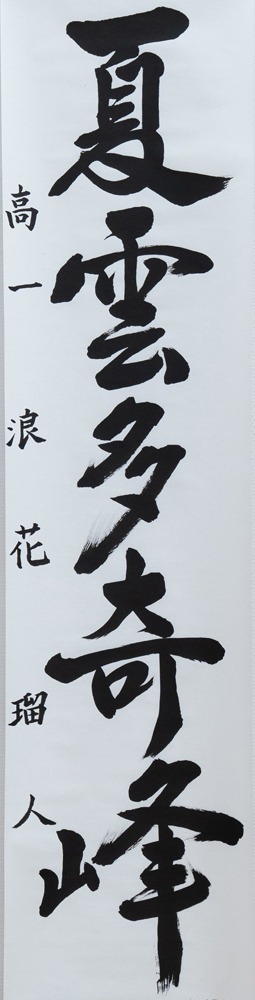 夏雲多奇峰
高一 浪花瑠人